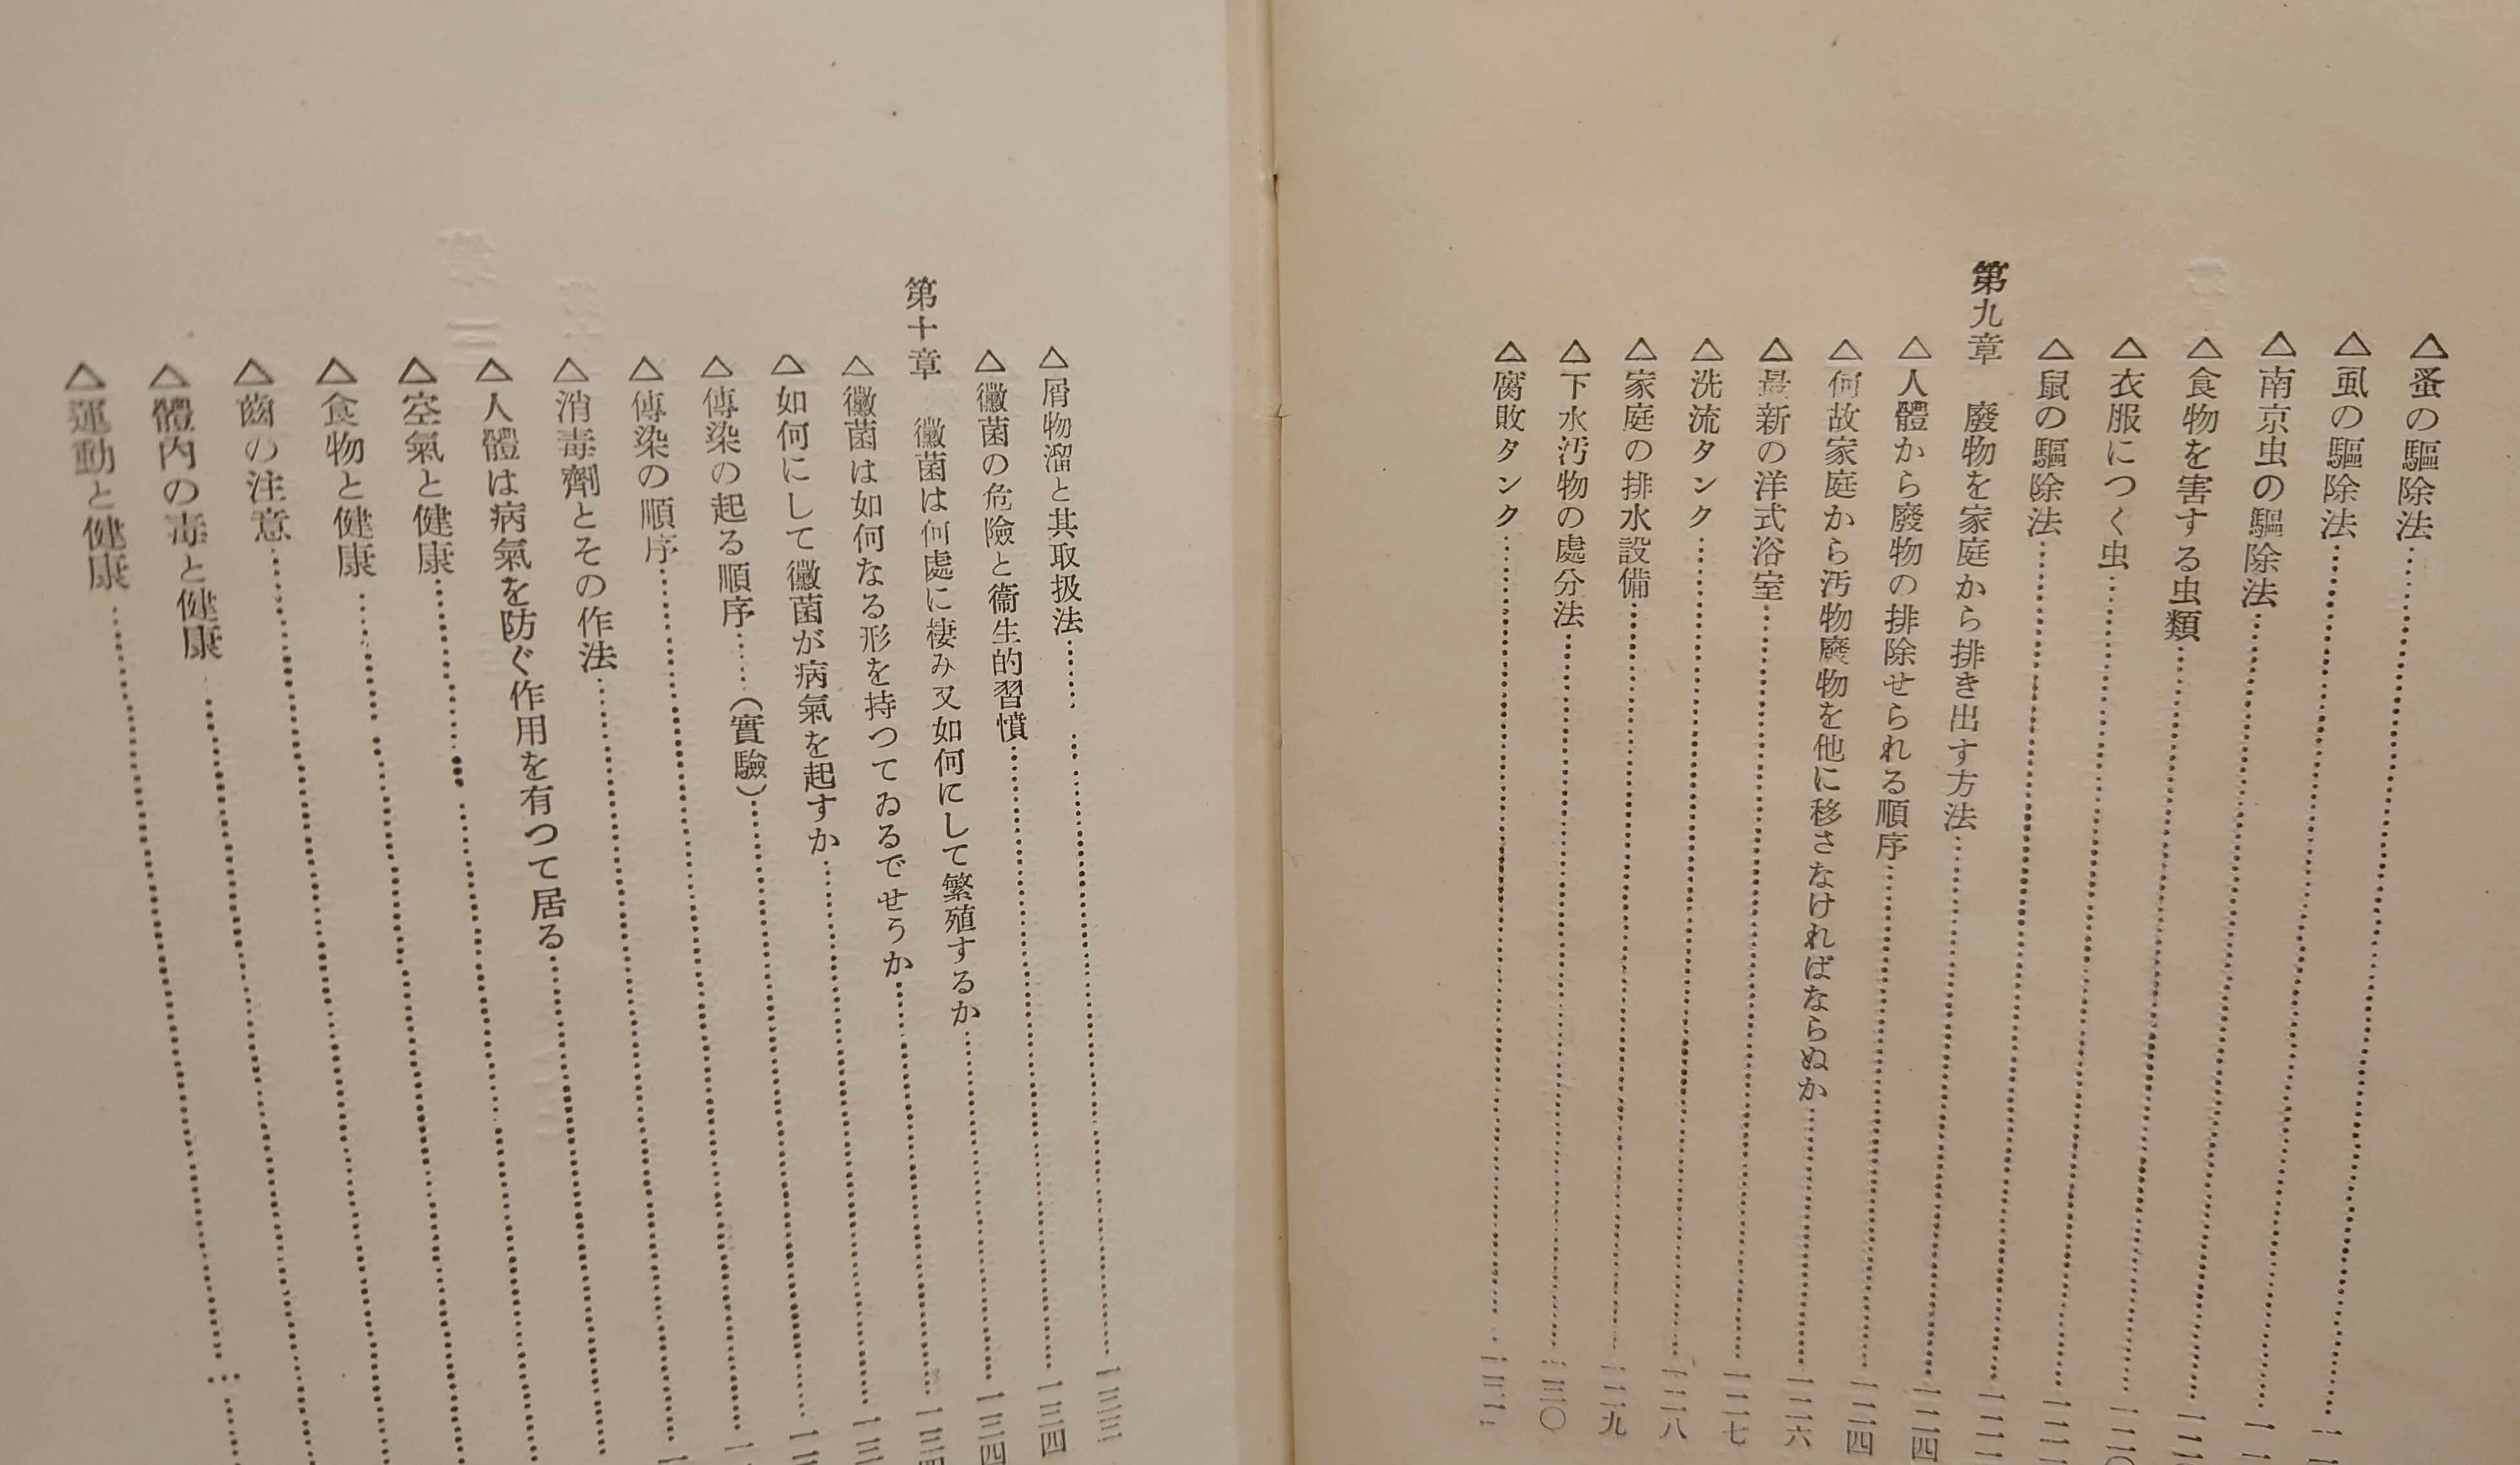 △蚤の驅除法
△虱の驅除法
△南京虫の驅除法
△食物を害する虫類
△衣服につく虫
△鼠の驅除法
第九章 廢物を家庭から排き出す方法
△人體から廢物の排除せられる順序 一二四
△何故家庭から汚物廢物を他に移さなければならぬか 一二四
△最新の洋式浴室 一二六
△洗流タンク 一二七
△家庭の排水設備 一二八
△下水汚物の處分法 一二九
△腐敗タンク 一三〇
△屑物溜と其取扱法 一三三
△黴菌の危險と衞生的習慣 一三四
第十章 黴菌は何處に棲み又如何にして繁殖するか 一三四
△黴菌は如何なる形を持つてゐるでせうか
△如何にして黴菌が病氣を起すか
△傳染の起る順序……(實驗)
△傳染の順序
△消毒劑とその作法
△人體は病氣を防ぐ作用を有つて居る
△空氣と健康
△食物と健康
△齒の注意
△體内の毒と健康
△運動と健康